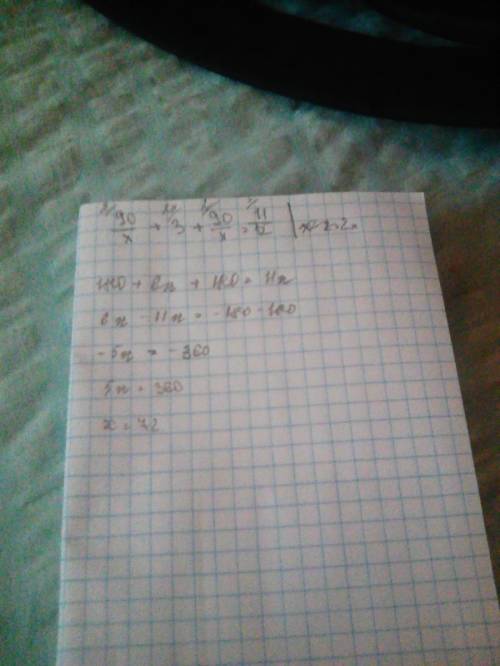 90/x + 3 + 90/x = 11/2 | x · 2 = 2x
180 + 6x + 180 = 11x
6x - 11x = -180 - 180
-5x = -360
5x = 360
x = 72